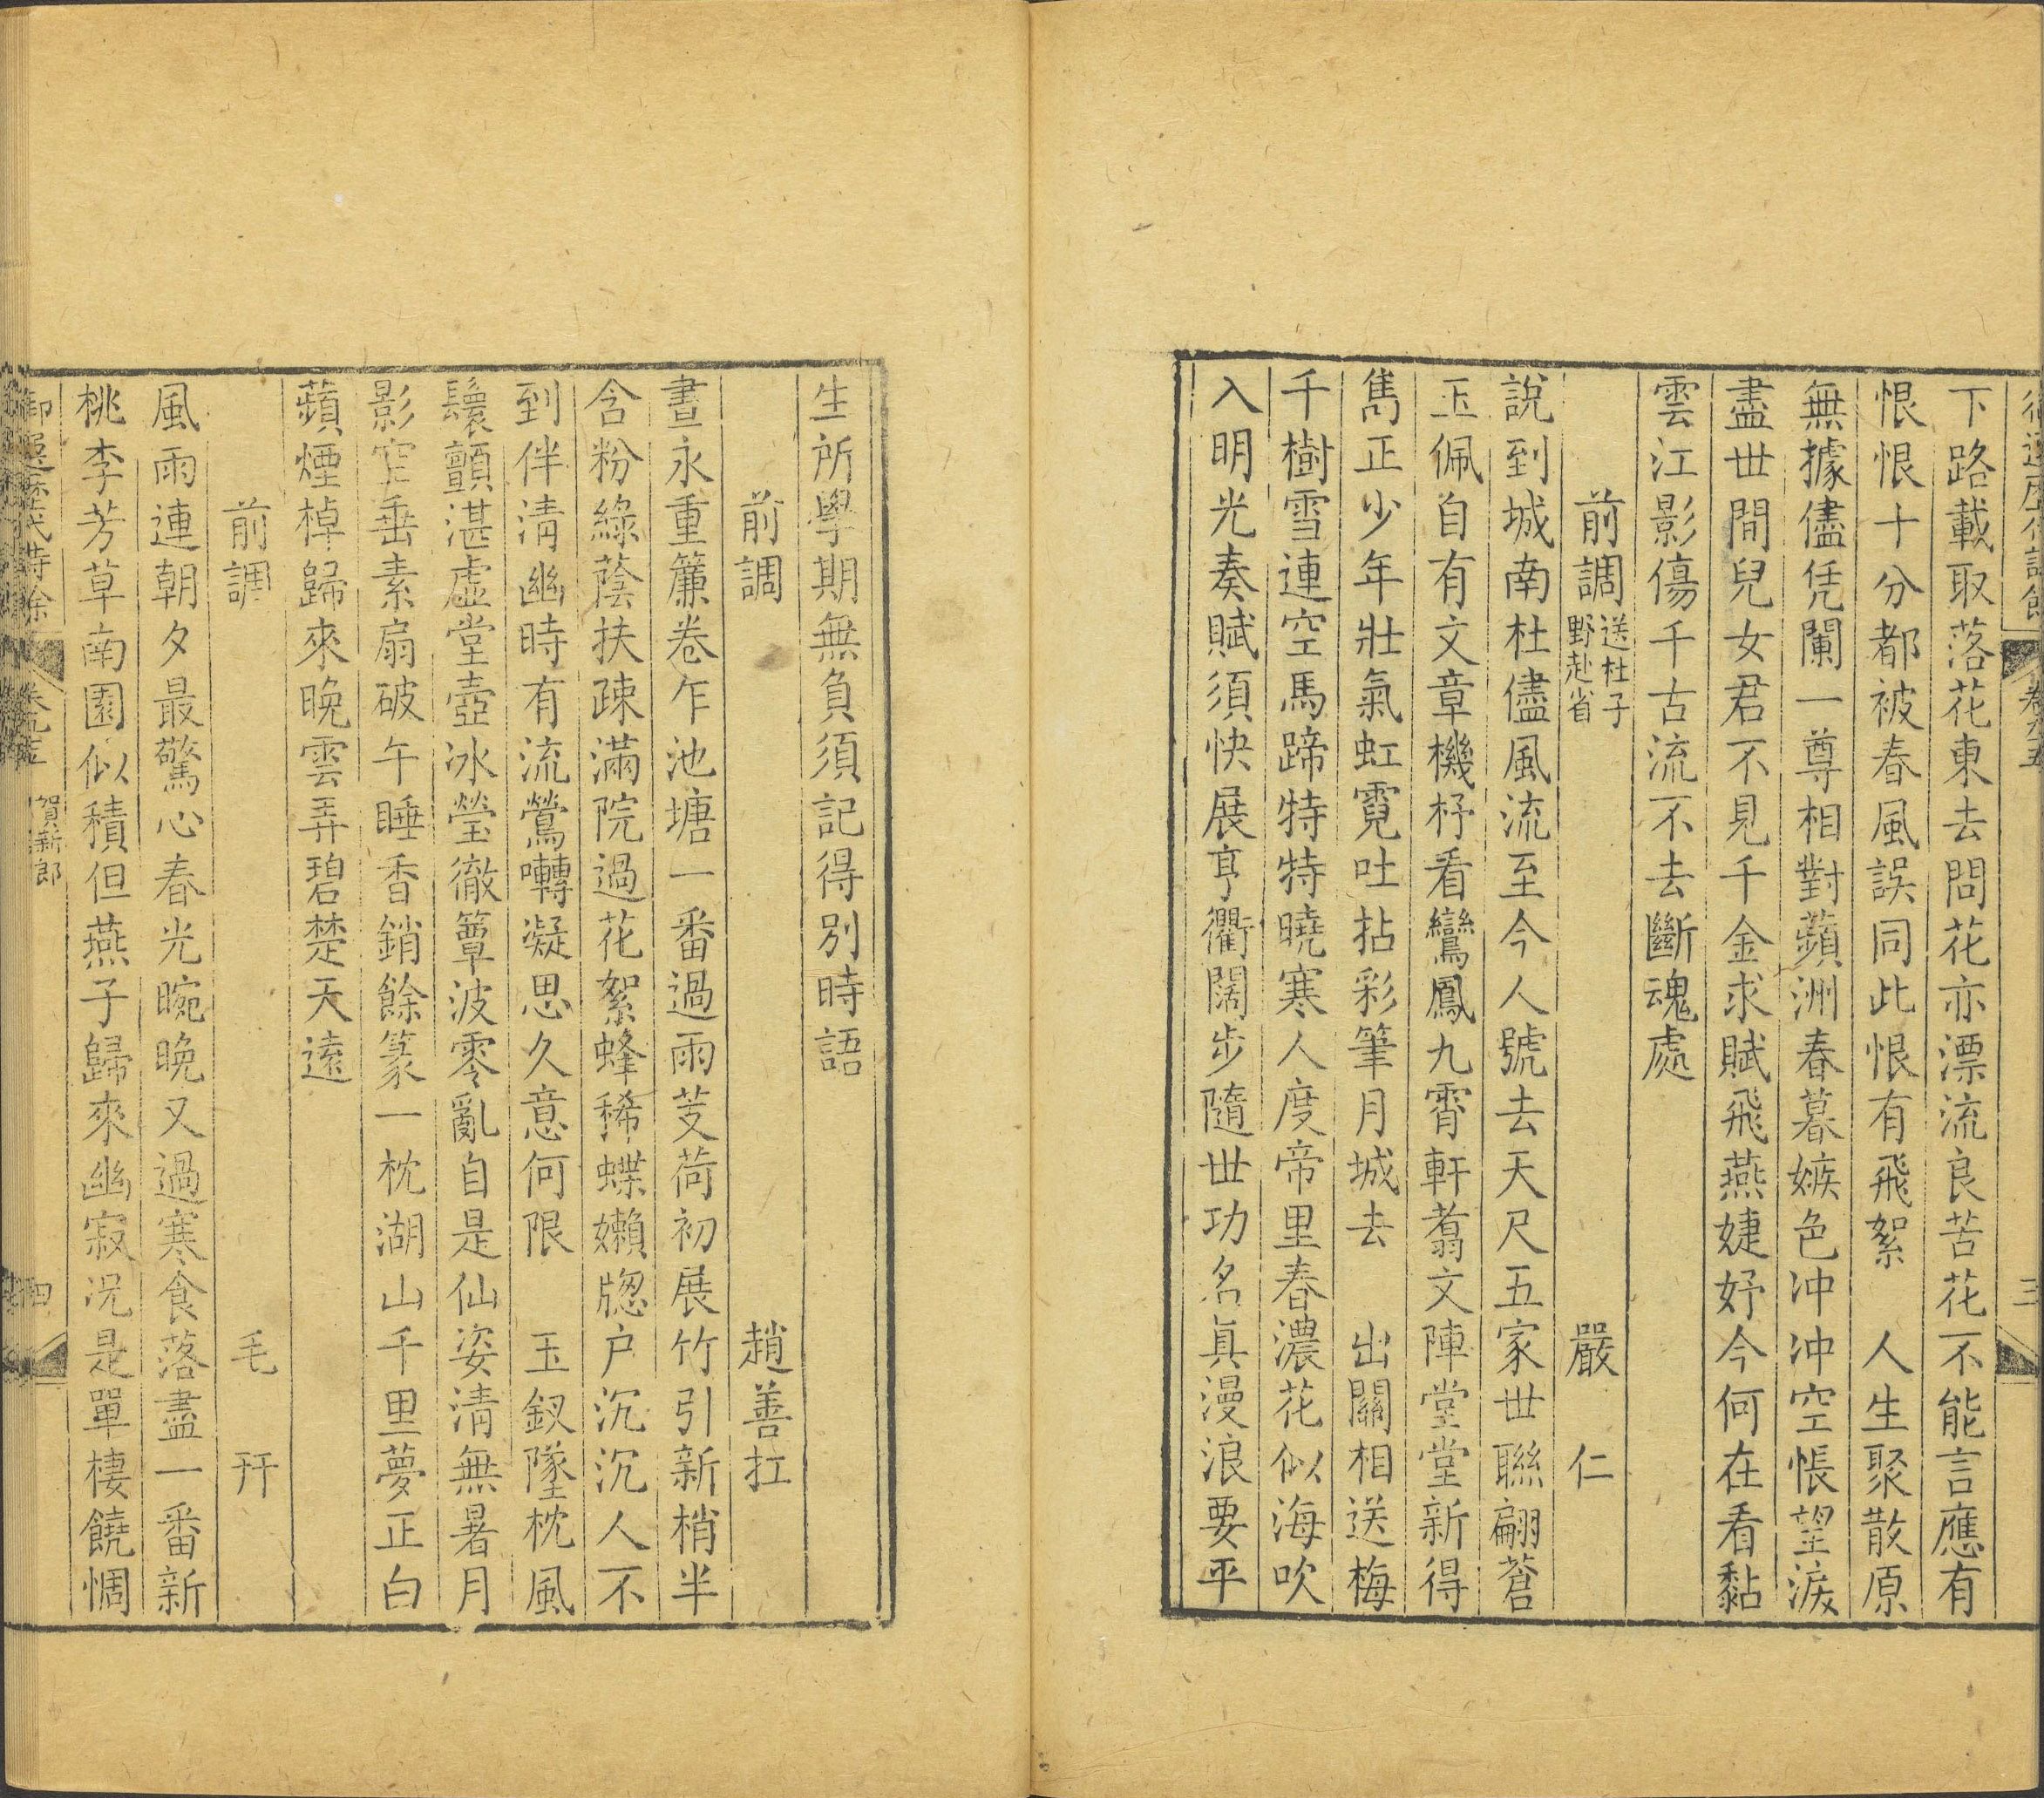 下路載取落花東去問花亦漂流良苦花不能言應有
恨恨十分都被春風誤同此恨有飛絮　人生聚散原
無據儘凭闌一尊相對蘋洲春暮嫉色冲冲空悵望淚
盡世間兒女君不見千金求賦飛燕婕妤今何在看黏
雲江影傷千古流不去斷魂處
前調 送杜子野赴省　嚴仁
說到城南杜儘風流至今人號去天尺五家世聯翩蒼
玉佩自有文章機杼看鸞鳳九霄軒翥文陣堂堂新得
雋正少年壯氣虹霓吐拈彩筆月城去　出關相送梅
千樹雪連空馬蹄特特曉寒人度帝里春濃花似海吹
入明光奏賦須快展亨衢闊步隨世功名真漫浪要平
生所學期無負須記得別時語
前調　趙善扛
晝永重簾卷乍池塘一番過雨芰荷初展竹引新梢半
含粉綠蔭扶疎滿院過花絮蜂稀蝶嬾牕户沉沉人不
到伴淸幽時有流鶯囀凝思久意何限　玉釵墜枕風
鬟顫湛虛堂壺冰瑩徹簟波零亂自是仙姿淸無暑月
影空垂素扇破午睡香銷餘篆一枕湖山千里夢正白
蘋煙棹歸來晚雲弄碧楚天遠
前調　毛幵
風雨連朝夕最驚心春光晼晚又過寒食落盡一番新
桃李芳草南園似積但燕子歸來幽寂況是單棲饒惆
賀新郎
四